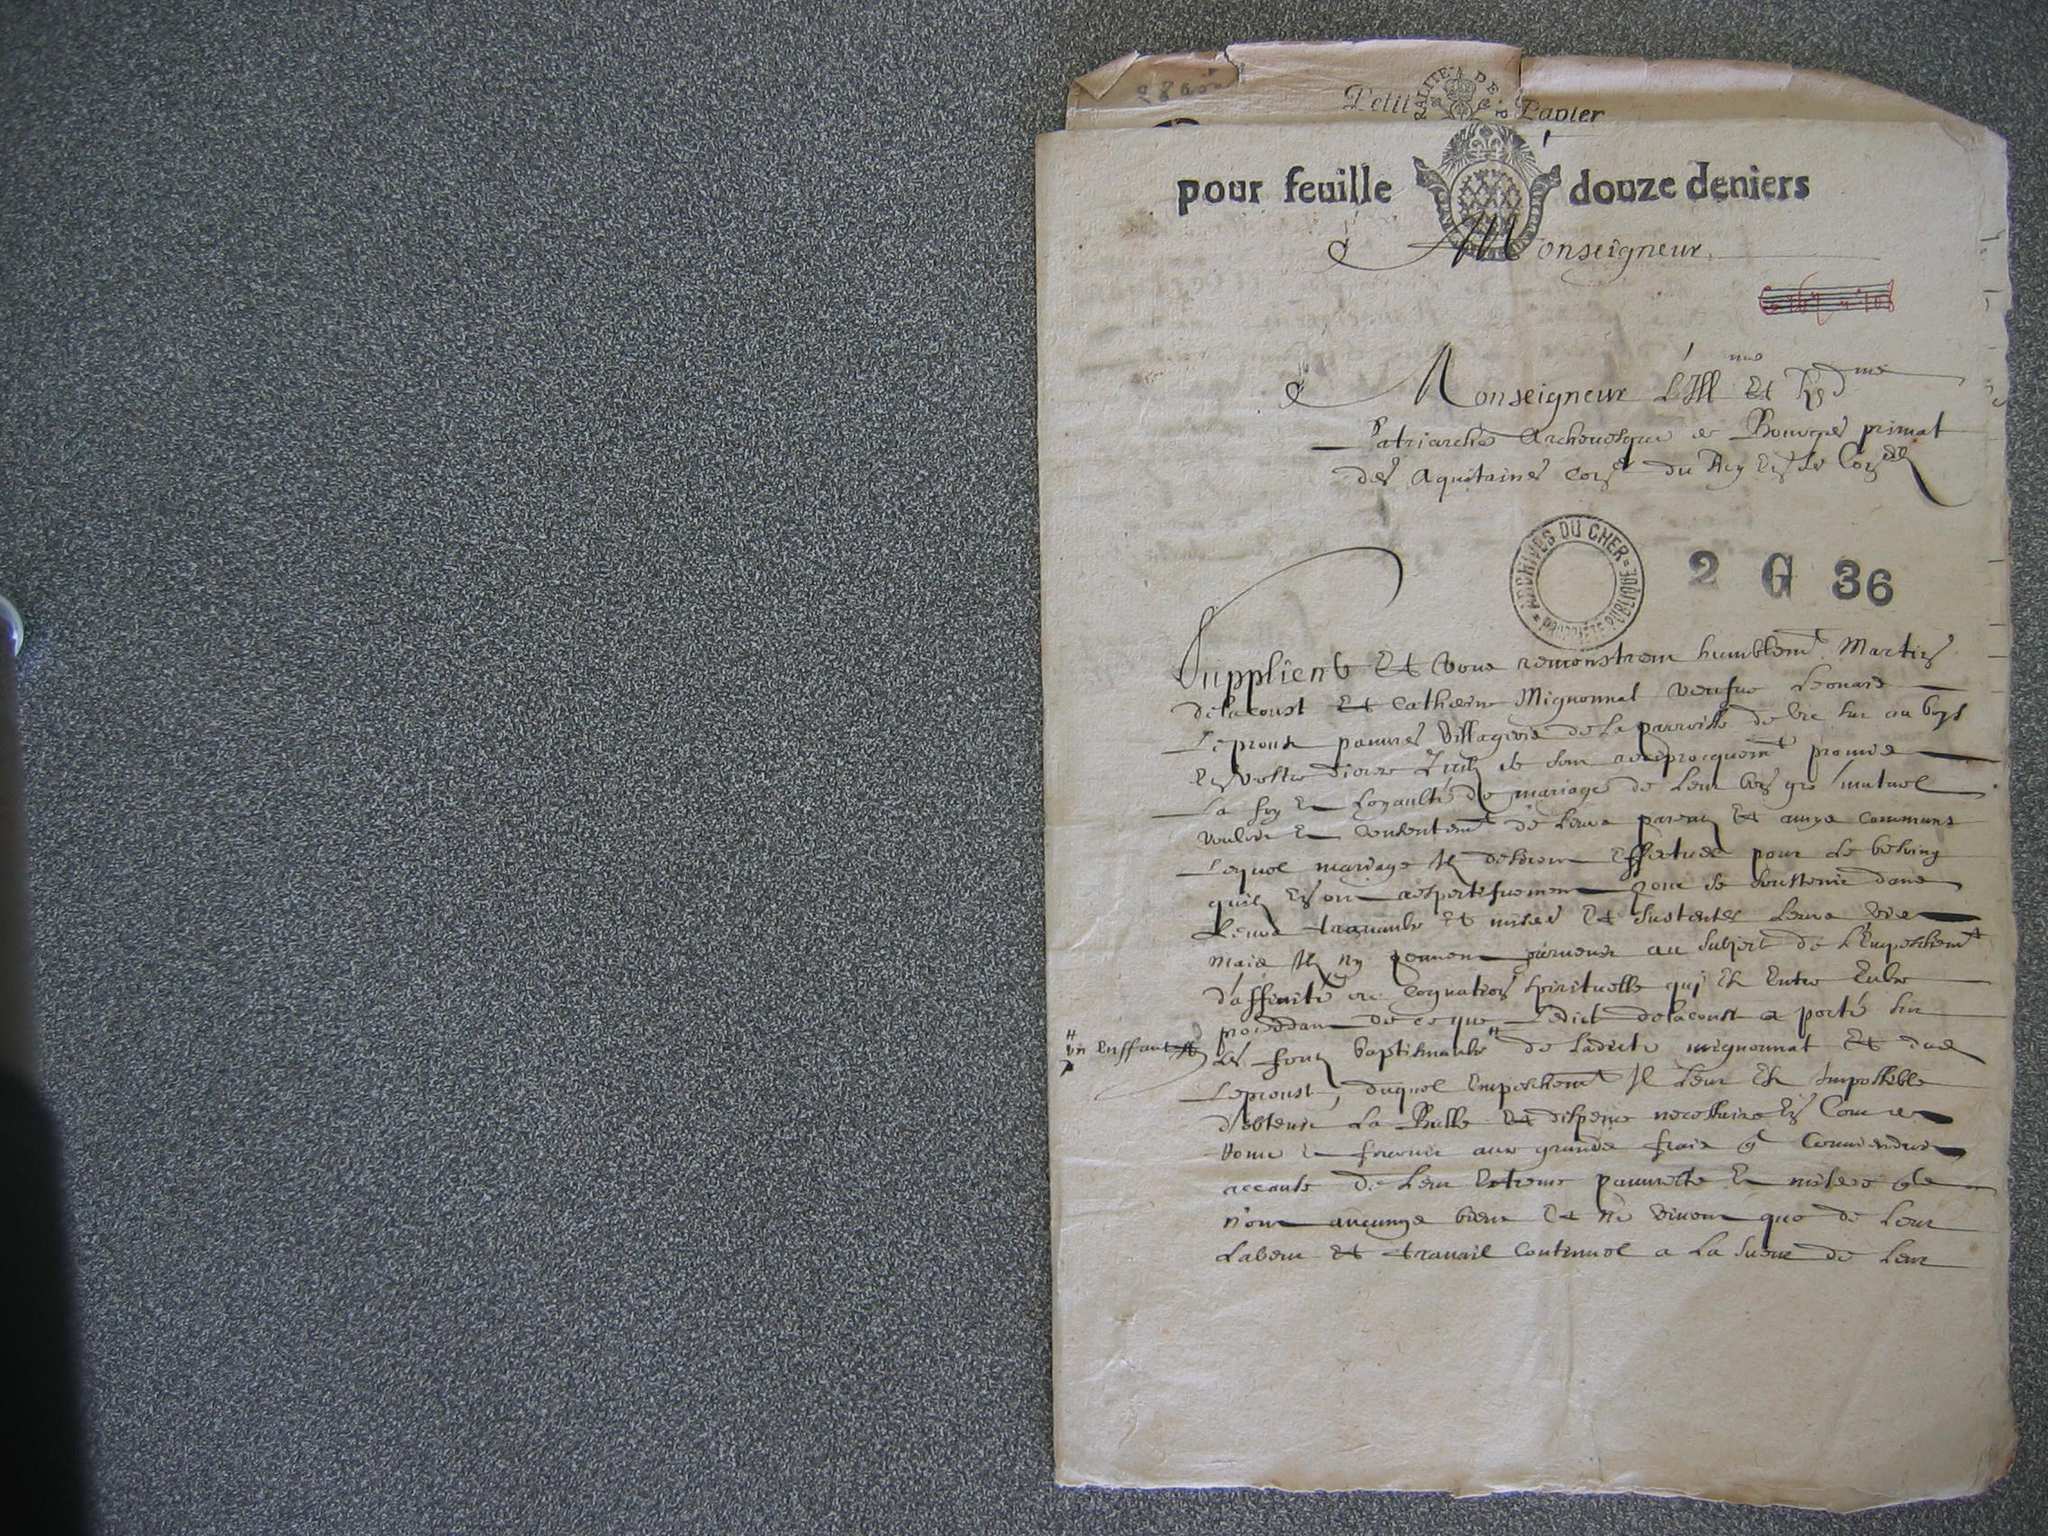 Petit Papier
pour feuille douze deniers
A Monseigneur
A Monseigneur L'Ill me Et R d me
Patriarche Archevesque de Bourges primat
des Aquitaines con er du Roy En ses Con els
ARCHIVES DU CHER
2 G 36
Supplient Et vous remonstrent humblem t Martin
delacoust Et Catherine Mignonnat veufve Leonard
Leproust pauvres villageois de La parroisse de
En vostre diocese se sont reciprocquem t promis
La foy Et Loyaulté de mariage de Leur bon gré mutuel
vouloir Et consentem t de Leurs parens Et amys communs
Lequel mariage Ilz desirent Effectuer pour Le besoing
quilz En ont respectifvement pour se soustenir dans
Leurs travaulx Et miseres Et sustenter Leurs vies
mais Ilz ny peuvent parvenir au subject de L'Empeschem t
d'affinité ou Cognation spirituelle qui Est Entre Eulx
procedant de ce que Ledict delacoust a porté sur
un Enffant
Les fons baptismaulx de Ladicte mignonnat Et dud
Leproust, duquel Empeschem t Il Leur Est Impossible
d'obtenir La Bulle Et dispense necessaire En Cour de
Rome Et fournir aux grands frais Conviendroit
a cause de Leur Extreme pauvreté Et misere
n'ont aucungs biens Et ne vivent que de Leur
Labeur Et travail Continuel a La sueur de Leur